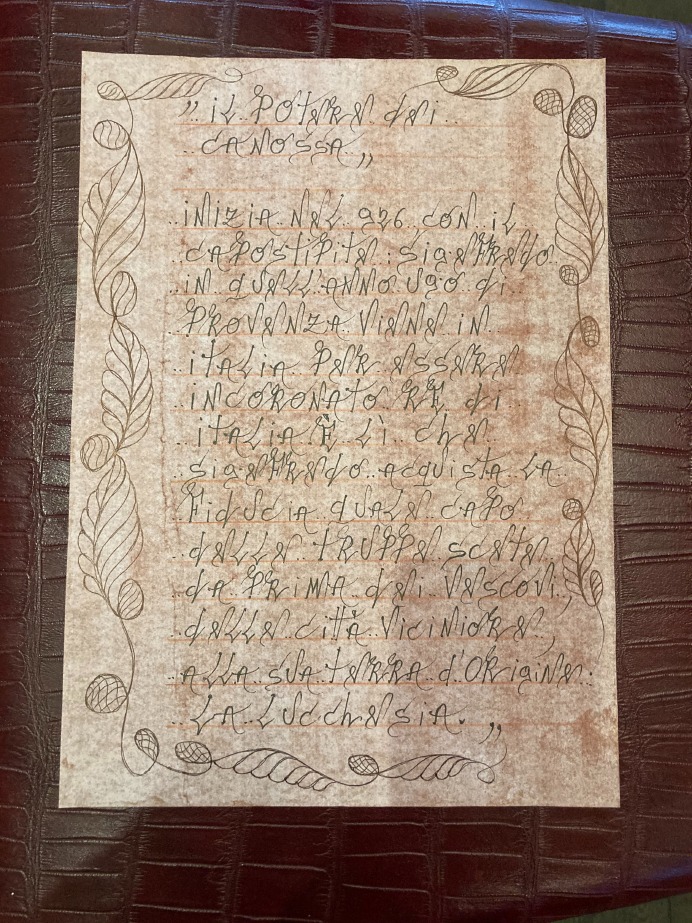 " IL POTERE dEI
CANOSSA "
INIZIA NEL 926, CON IL
CAPOSTIPITE : SIGEFREDO
IN QUELL'ANNO UGO di
PROVENZA VIENE IN
ITALIA PER ESSERE
INCORONATO RE di
ITALIA È LÌ chE
SIGEFREDO ACQUISTA LA
FIDUCIA QUALE CAPO
dELLE TRUPPE SCELTE
DA PRIMA dEI VESCOVI,
dELLE CITÀ VICINIORE,
ALLA SUA TERRA d'ORIGINE:
LA LUCChESIA. "